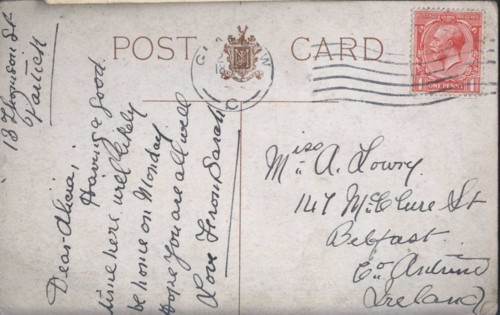 18 Thomson St
Partick
POST CARD
GLASGOW
C
ONE PENNY
Dear Alicia,
Having a good
time here will likely
be home on Monday
Hope you are all well
Love from Sarah
Miss A. Lowry.
147 McClure St
Belfast.
Co. Antrim
Ireland